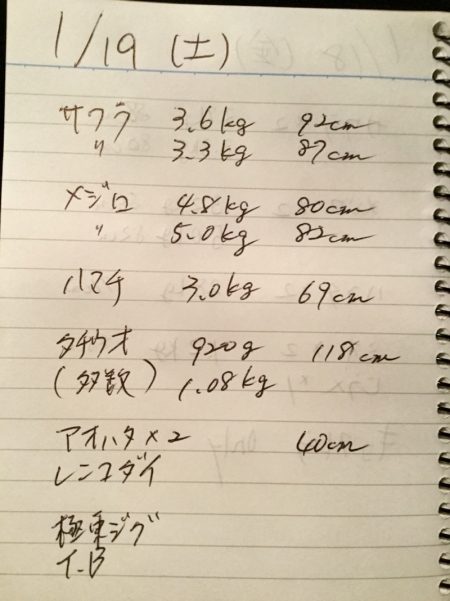 1/19 (土)
サワラ 3.6kg 92cm
〃 3.3kg 87cm
メジロ 4.8kg 80cm
〃 5.0kg 82cm
ハマチ 3.0kg 69cm
タチウオ 920g 118cm
(多数) 1.08kg
アオハタ×2 40cm
レンコダイ
極東ジグ
T.B